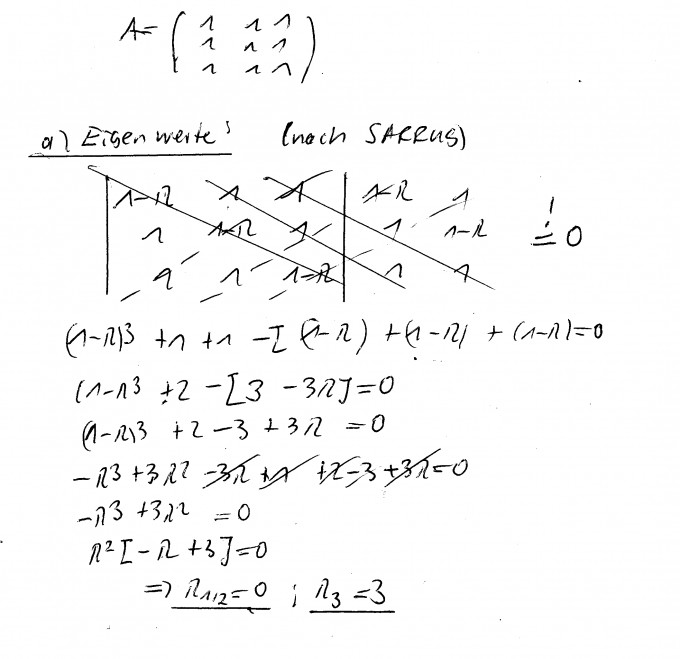 A= ( 1 1 1
1 1 1
1 1 1 )
a) Eigenwerte: (nach SARRUS)
| 1-λ 1 1 | 1-λ 1
1 1-λ 1 | 1 1-λ != 0
1 1 1-λ | 1 1
(1-λ)3 +1 +1 -[(1-λ) +(1-λ) + (1-λ)=0
(1-λ3 +2 -[3 -3λ]=0
(1-λ)3 +2 -3 +3λ =0
-λ3 +3λ2 -3λ +1 +2 -3 +3λ=0
-λ3 +3λ2 =0
λ2[-λ +3]=0
=> λ1/2=0 ; λ3 =3